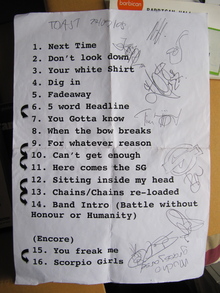 barbican
TOAST
1. Next Time
2. Don't look down
3. Your white Shirt
4. Dig in
5. Fadeaway
6. 5 word Headline
7. You Gotta know
8. When the bow breaks
9. For whatever reason
10. Can't get enough
11. Here comes the SG
12. Sitting inside my head
13. Chains/Chains re-loaded
14. Band Intro (Battle without
Honour or Humanity)
(Encore)
15. You freak me
16. Scorpio Girls